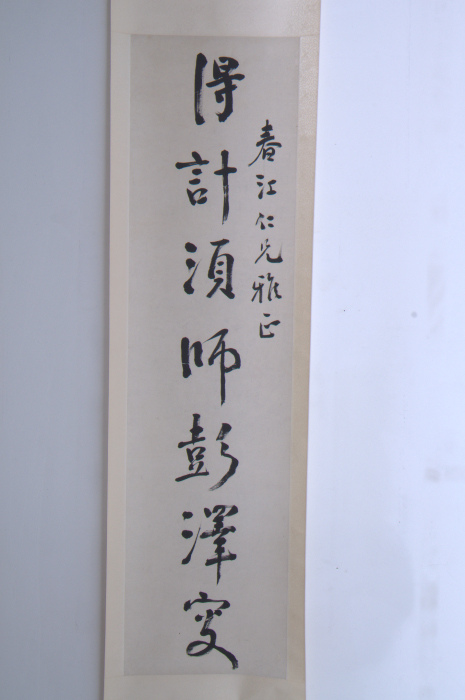 春江仁兄雅正
得計須師彭澤叟